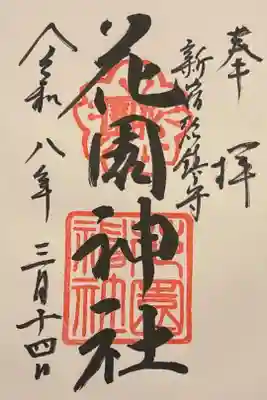 奉拝
新宿総鎮守
花園神社
令和八年三月十四日
花園神社